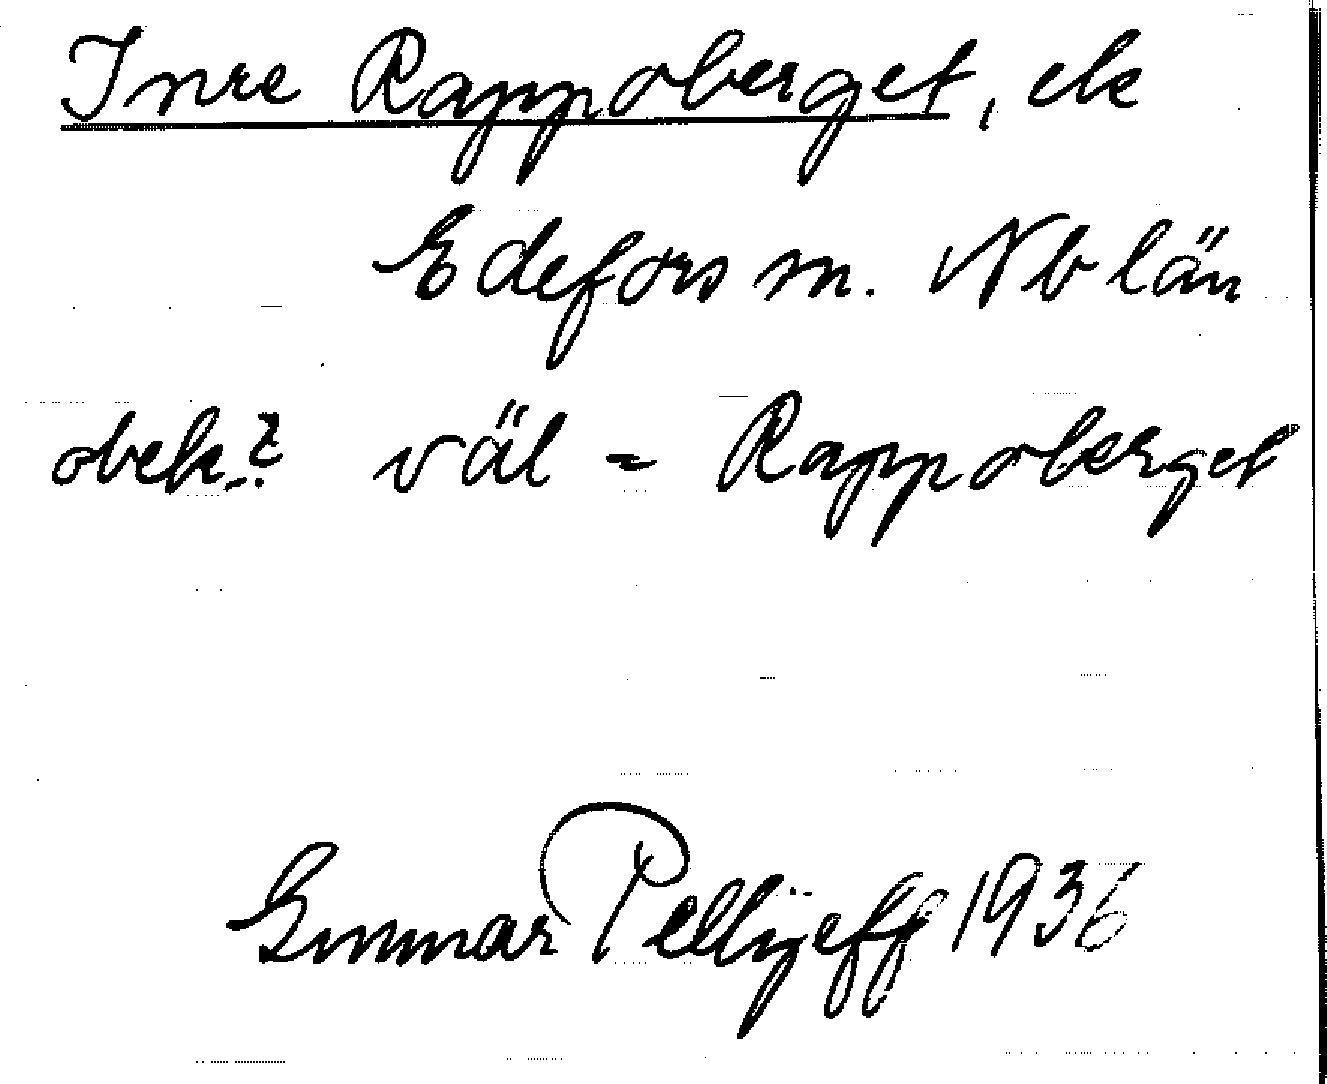 Inre Rappoberget, ek
Edefors sn. Nb län
obek.? väl = Rappoberget
Gunnar Pellijeff 1936